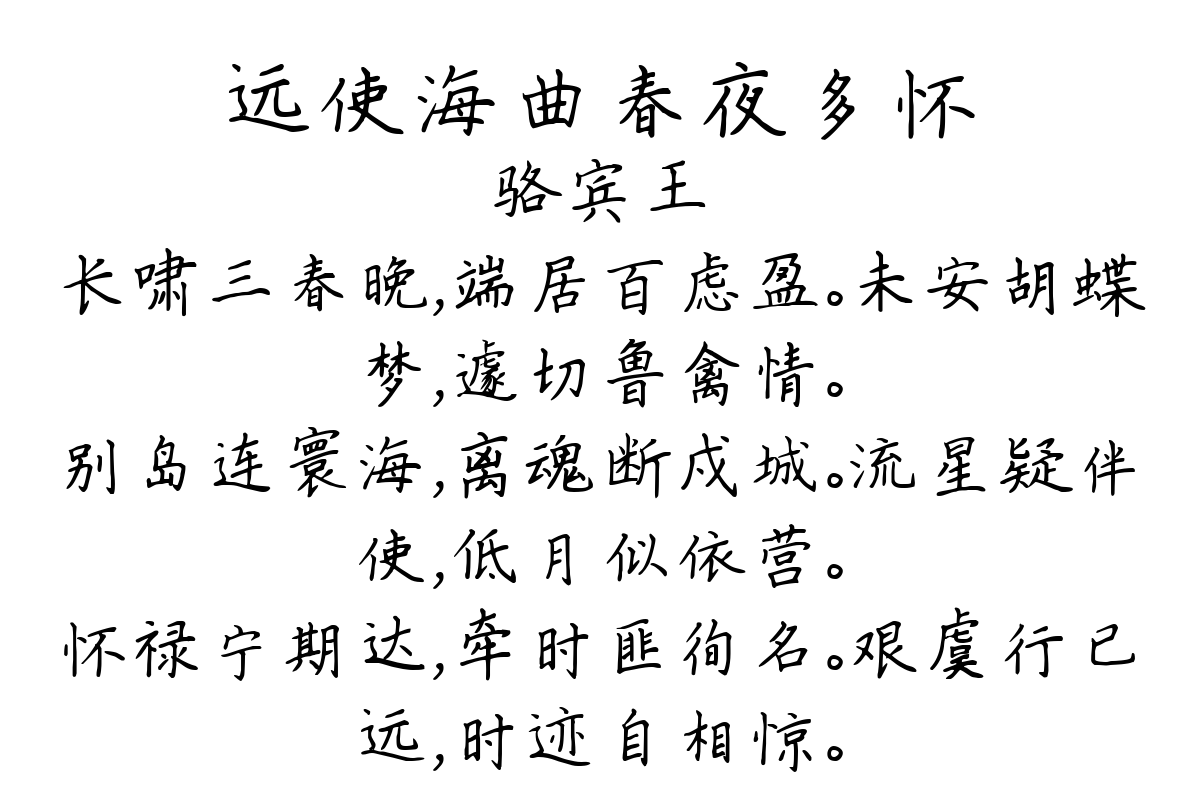 远使海曲春夜多怀
骆宾王
长啸三春晚,端居百虑盈。未安胡蝶
梦,遽切鲁禽情。
别岛连寰海,离魂断戍城。流星疑伴
使,低月似依营。
怀禄宁期达,牵时匪徇名。艰虞行已
远,时迹自相惊。